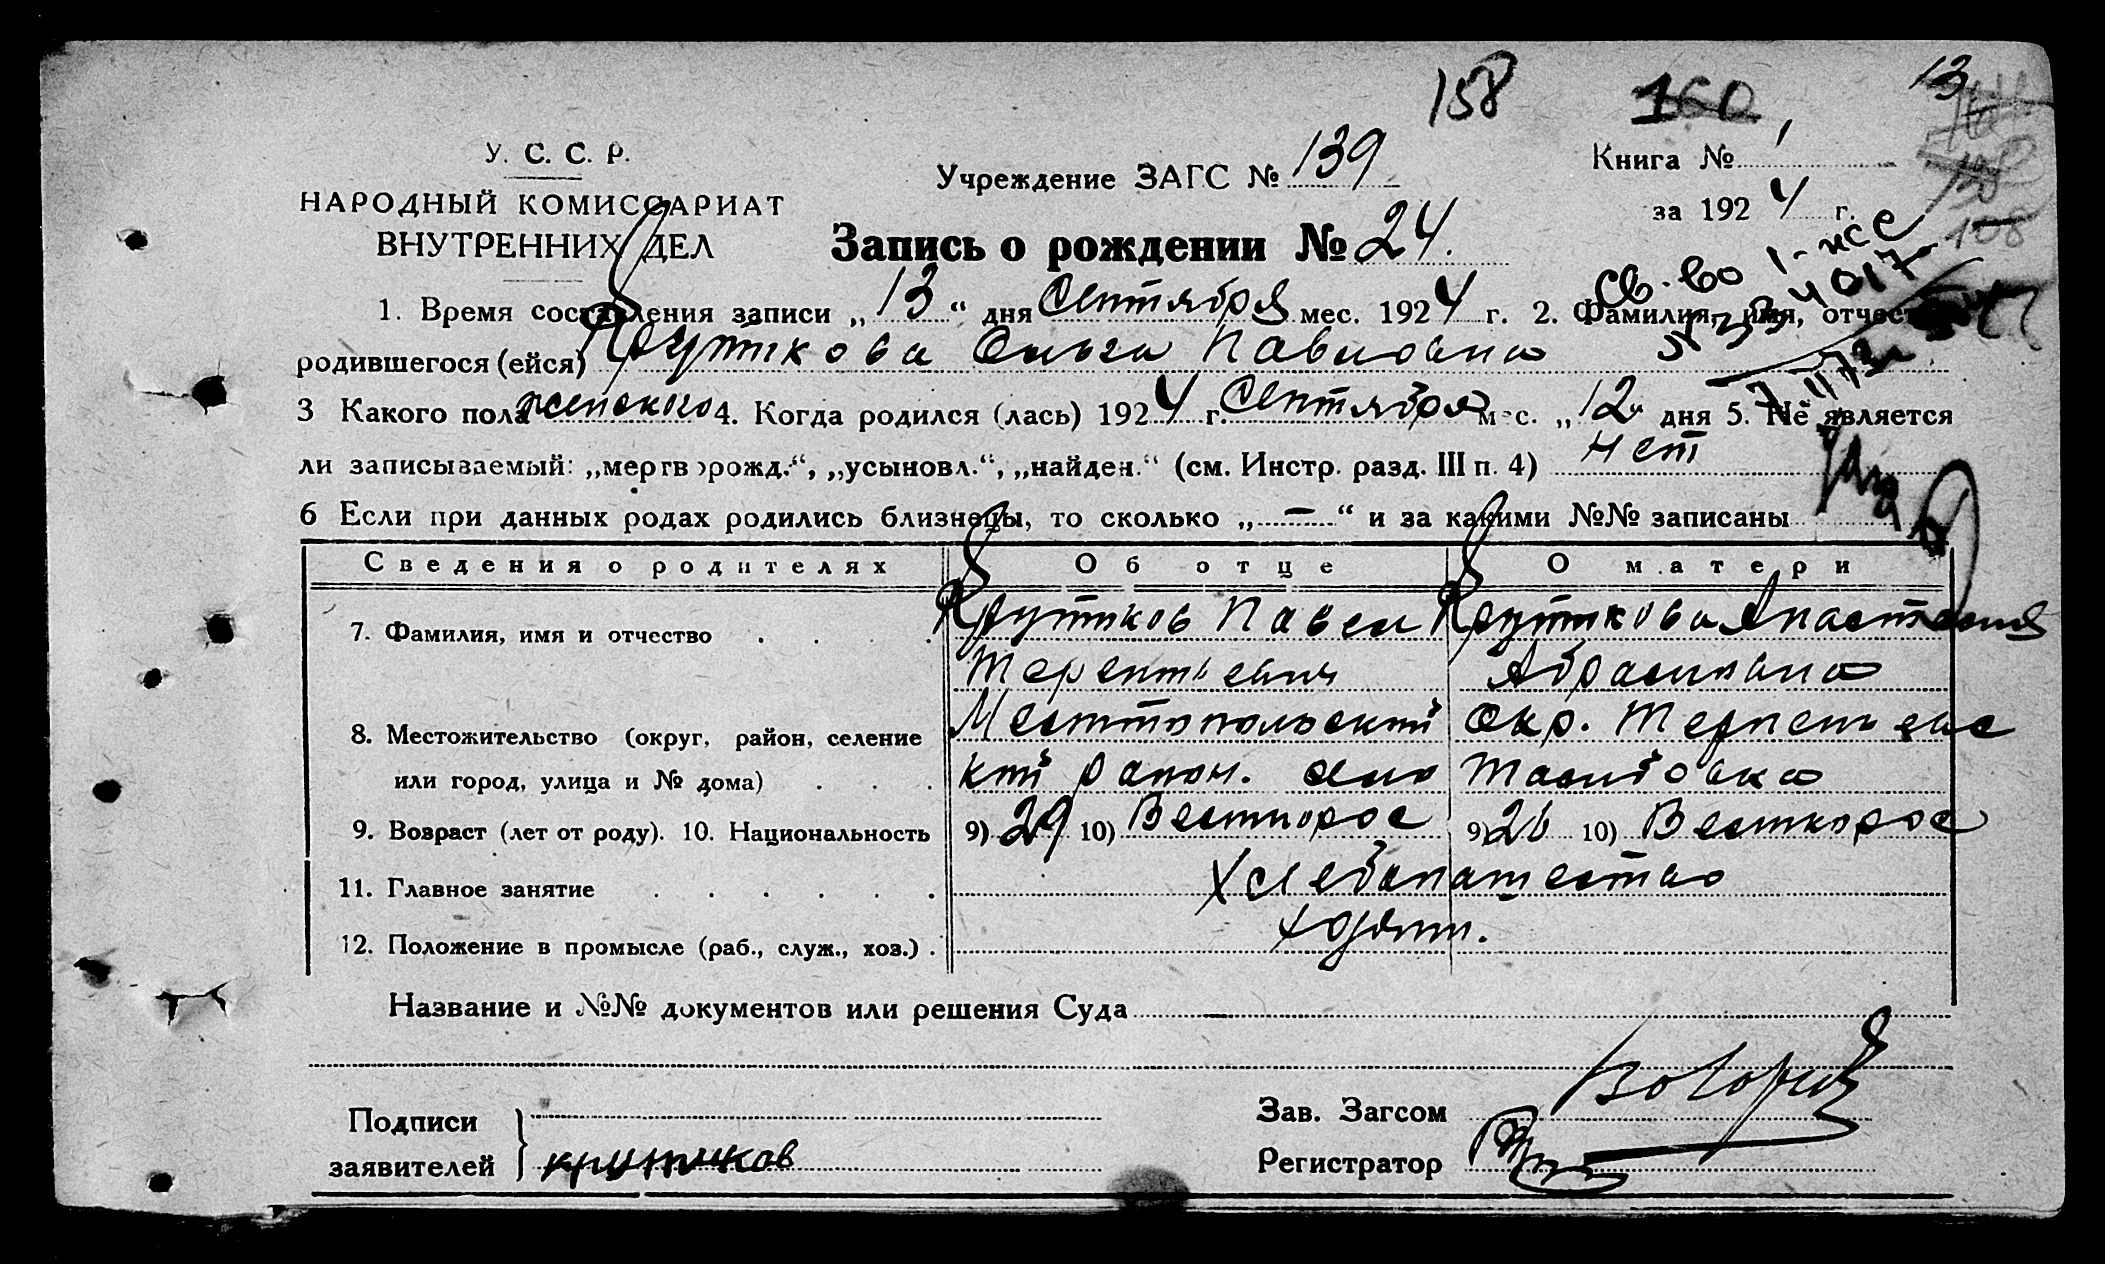 158 160 13
У. С. С. Р.
НАРОДНЫЙ КОМИССАРИАТ
ВНУТРЕННИХ ДЕЛ
Учреждение ЗАГС № 139
Книга № 1
за 1924 г.
Запись о рождении № 24.
Св-во
1. Время составления записи „13“ дня Сентября мес. 1924 г. 2. Фамилия, имя, отчест
родившегося (ейся) Крутикова Ольга Павловна
3 Какого пола женского 4. Когда родился (лась) 1924 г. Сентября мес. „12“ дня 5. Не является
ли записываемый: „мертворожд.“, „усыновл.“, „найден.“ (см. Инстр. разд. III п. 4) нет
6 Если при данных родах родились близнецы, то сколько „—“ и за какими №№ записаны
Сведения о родителях Об отце О матери
7. Фамилия, имя и отчество Крутиков Павел Крутикова Анастасия
Терентьевич Абрамовна
8. Местожительство (округ, район, селение Мелитопольский Окр. Терпеньевс
или город, улица и № дома) кий район. село
9. Возраст (лет от роду). 10. Национальность 9) 29 10) Великорос 9) 26 10) Великорос
11. Главное занятие Хлебопашество
12. Положение в промысле (раб., служ., хоз.) хозяин.
Название и №№ документов или решения Суда —
Подписи
заявителей Крутиков
Зав. Загсом
Регистратор